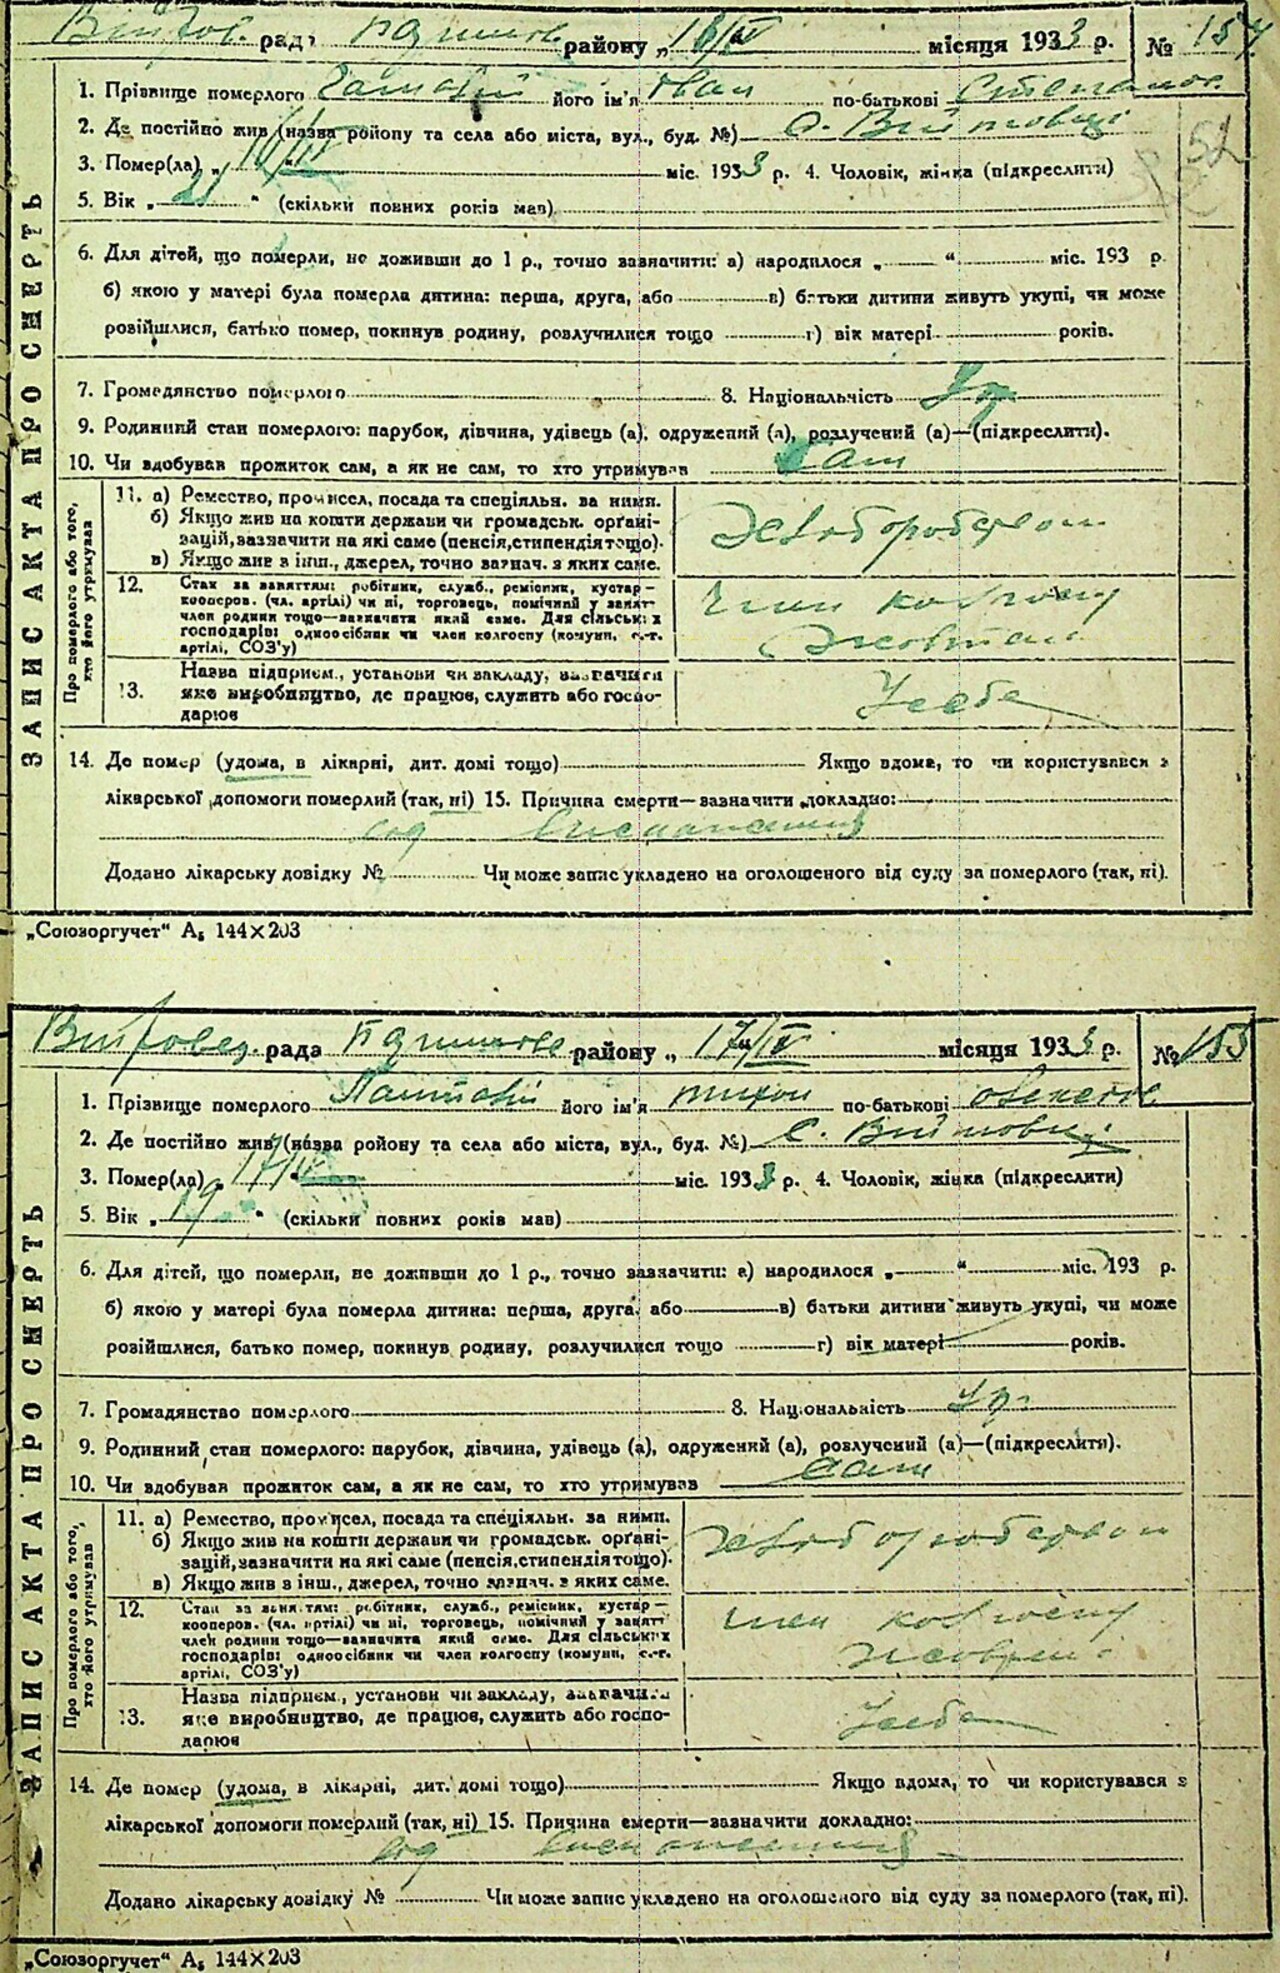 рада району „ 16/IV місяця 1933 р. № 154
1. Прізвище померлого його ім'я Іван по-батькові Степанов.
2. Де постійно жив (назва району та села або міста, вул., буд. №) с. Війтовці
3. Помер(ла) „ 16/IV " міс. 1933 р. 4. Чоловік, жінка (підкреслити)
5. Вік „ " (скільки повних років мав)
6. Для дітей, що померли, не доживши до 1 р., точно зазначити: а) народилося „ " міс. 193 р.
б) якою у матері була померла дитина: перша, друга, або в) батьки дитини живуть укупі, чи може
розійшлися, батько помер, покинув родину, розлучилися тощо г) вік матері років.
7. Громадянство померлого 8. Національність Укр
9. Родинний стан померлого: парубок, дівчина, удівець (а), одружений (а), розлучений (а)—(підкреслити).
10. Чи здобував прожиток сам, а як не сам, то хто утримував Сам
ЗАПИС АКТА ПРО СМЕРТЬ
Про померлого або того, хто його утримував
11. а) Ремество, промисел, посада та спеціяльн. за ними.
б) Якщо жив на кошти держави чи громадськ. орґані-
зацій, зазначити на які саме (пенсія, стипендія тощо).
в) Якщо жив з інш., джерел, точно зазнач. з яких саме.
Хліборобством
12. Стан за заняттям: робітник, служб., ремісник, кустар—
кооперов. (чл. артілі) чи ні, торговець, помічний у занят.
член родини тощо—зазначити який саме. Для сільських
господарів: одноосібник чи член колгоспу (комуни, с.-г.
артілі, СОЗ'у)
член колгоспу
13. Назва підприєм., установи чи закладу, зазначити
яке виробництво, де працює, служить або госпо-
дарює
14. Де помер (удома, в лікарні, дит. домі тощо) Якщо вдома, то чи користувався з
лікарської допомоги померлий (так, ні) 15. Причина смерти—зазначити докладно:
од виснаження
Додано лікарську довідку № Чи може запис укладено на оголошеного від суду за померлого (так, ні).
„Союзоргучет" А₅ 144×203
рада району „ 17/IV місяця 1933 р. № 155
1. Прізвище померлого його ім'я Тихон по-батькові
2. Де постійно жив (назва району та села або міста, вул., буд. №) с. Війтовці
3. Помер(ла) „ 17/IV " міс. 1933 р. 4. Чоловік, жінка (підкреслити)
5. Вік „ 19 " (скільки повних років мав)
6. Для дітей, що померли, не доживши до 1 р., точно зазначити: а) народилося „ " міс. 193 р.
б) якою у матері була померла дитина: перша, друга, або в) батьки дитини живуть укупі, чи може
розійшлися, батько помер, покинув родину, розлучилися тощо г) вік матері років.
7. Громадянство померлого 8. Національність Укр.
9. Родинний стан померлого: парубок, дівчина, удівець (а), одружений (а), розлучений (а)—(підкреслити).
10. Чи здобував прожиток сам, а як не сам, то хто утримував Сам
ЗАПИС АКТА ПРО СМЕРТЬ
Про померлого або того, хто його утримував
11. а) Ремество, промисел, посада та спеціяльн. за ними.
б) Якщо жив на кошти держави чи громадськ. орґані-
зацій, зазначити на які саме (пенсія, стипендія тощо).
в) Якщо жив з інш., джерел, точно зазнач. з яких саме.
Хліборобством
12. Стан за заняттям: робітник, служб., ремісник, кустар—
кооперов. (чл. артілі) чи ні, торговець, помічний у занят.
член родини тощо—зазначити який саме. Для сільських
господарів: одноосібник чи член колгоспу (комуни, с.-г.
артілі, СОЗ'у)
член колгоспу
13. Назва підприєм., установи чи закладу, зазначити
яке виробництво, де працює, служить або госпо-
дарює
14. Де помер (удома, в лікарні, дит. домі тощо) Якщо вдома, то чи користувався з
лікарської допомоги померлий (так, ні) 15. Причина смерти—зазначити докладно:
од виснаження
Додано лікарську довідку № Чи може запис укладено на оголошеного від суду за померлого (так, ні).
„Союзоргучет" А₅ 144×203